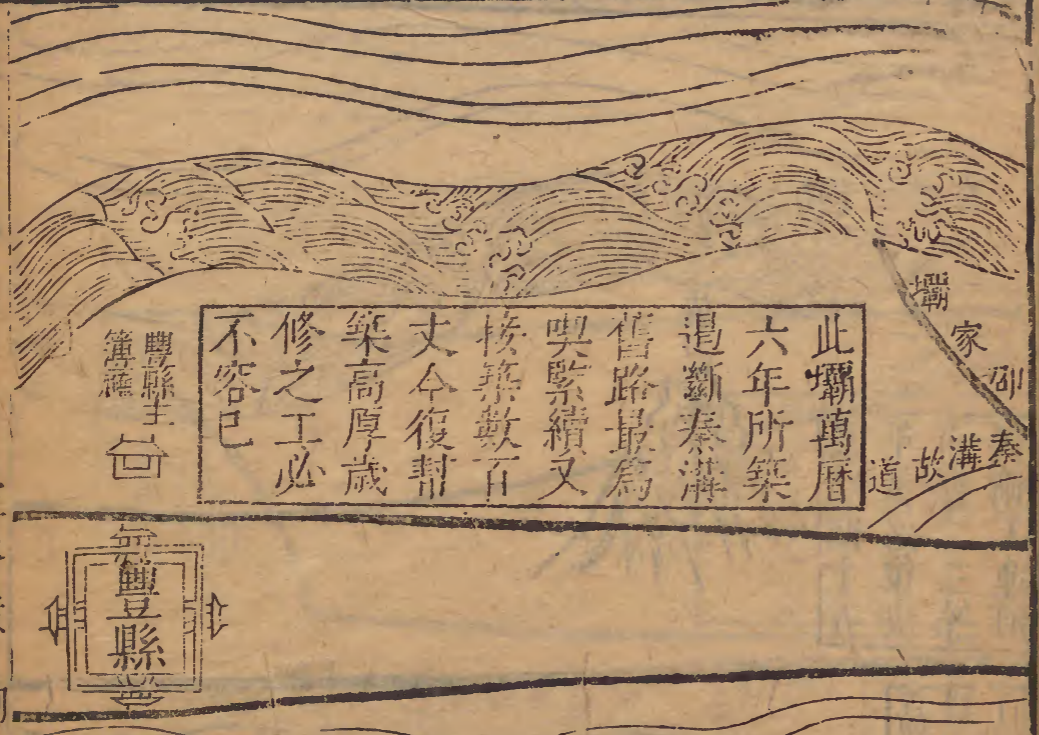 邵家壩
秦溝故道
此壩萬曆
六年所築
遏斷秦溝
舊路最為
喫緊續又
接築數百
丈今復幇
築高厚歲
修之工必
不容已
豐縣主
簿
豐縣